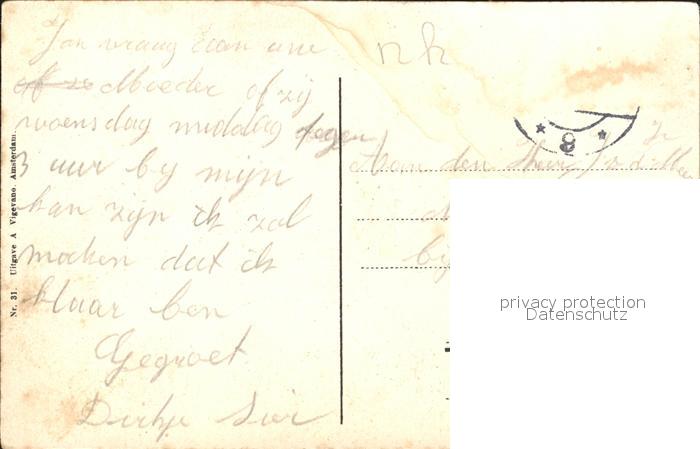 Jan vraag aan uw
of ze Moeder of zij
woensdag middag tegen
3 uur by mijn
kan zijn ik zal
maken dat ik
klaar ben
Gegroet
Dirkje
Nr. 31. Uitgave A Vigevano. Amsterdam.
8
Aan den Heer
by
privacy protection
Datenschutz